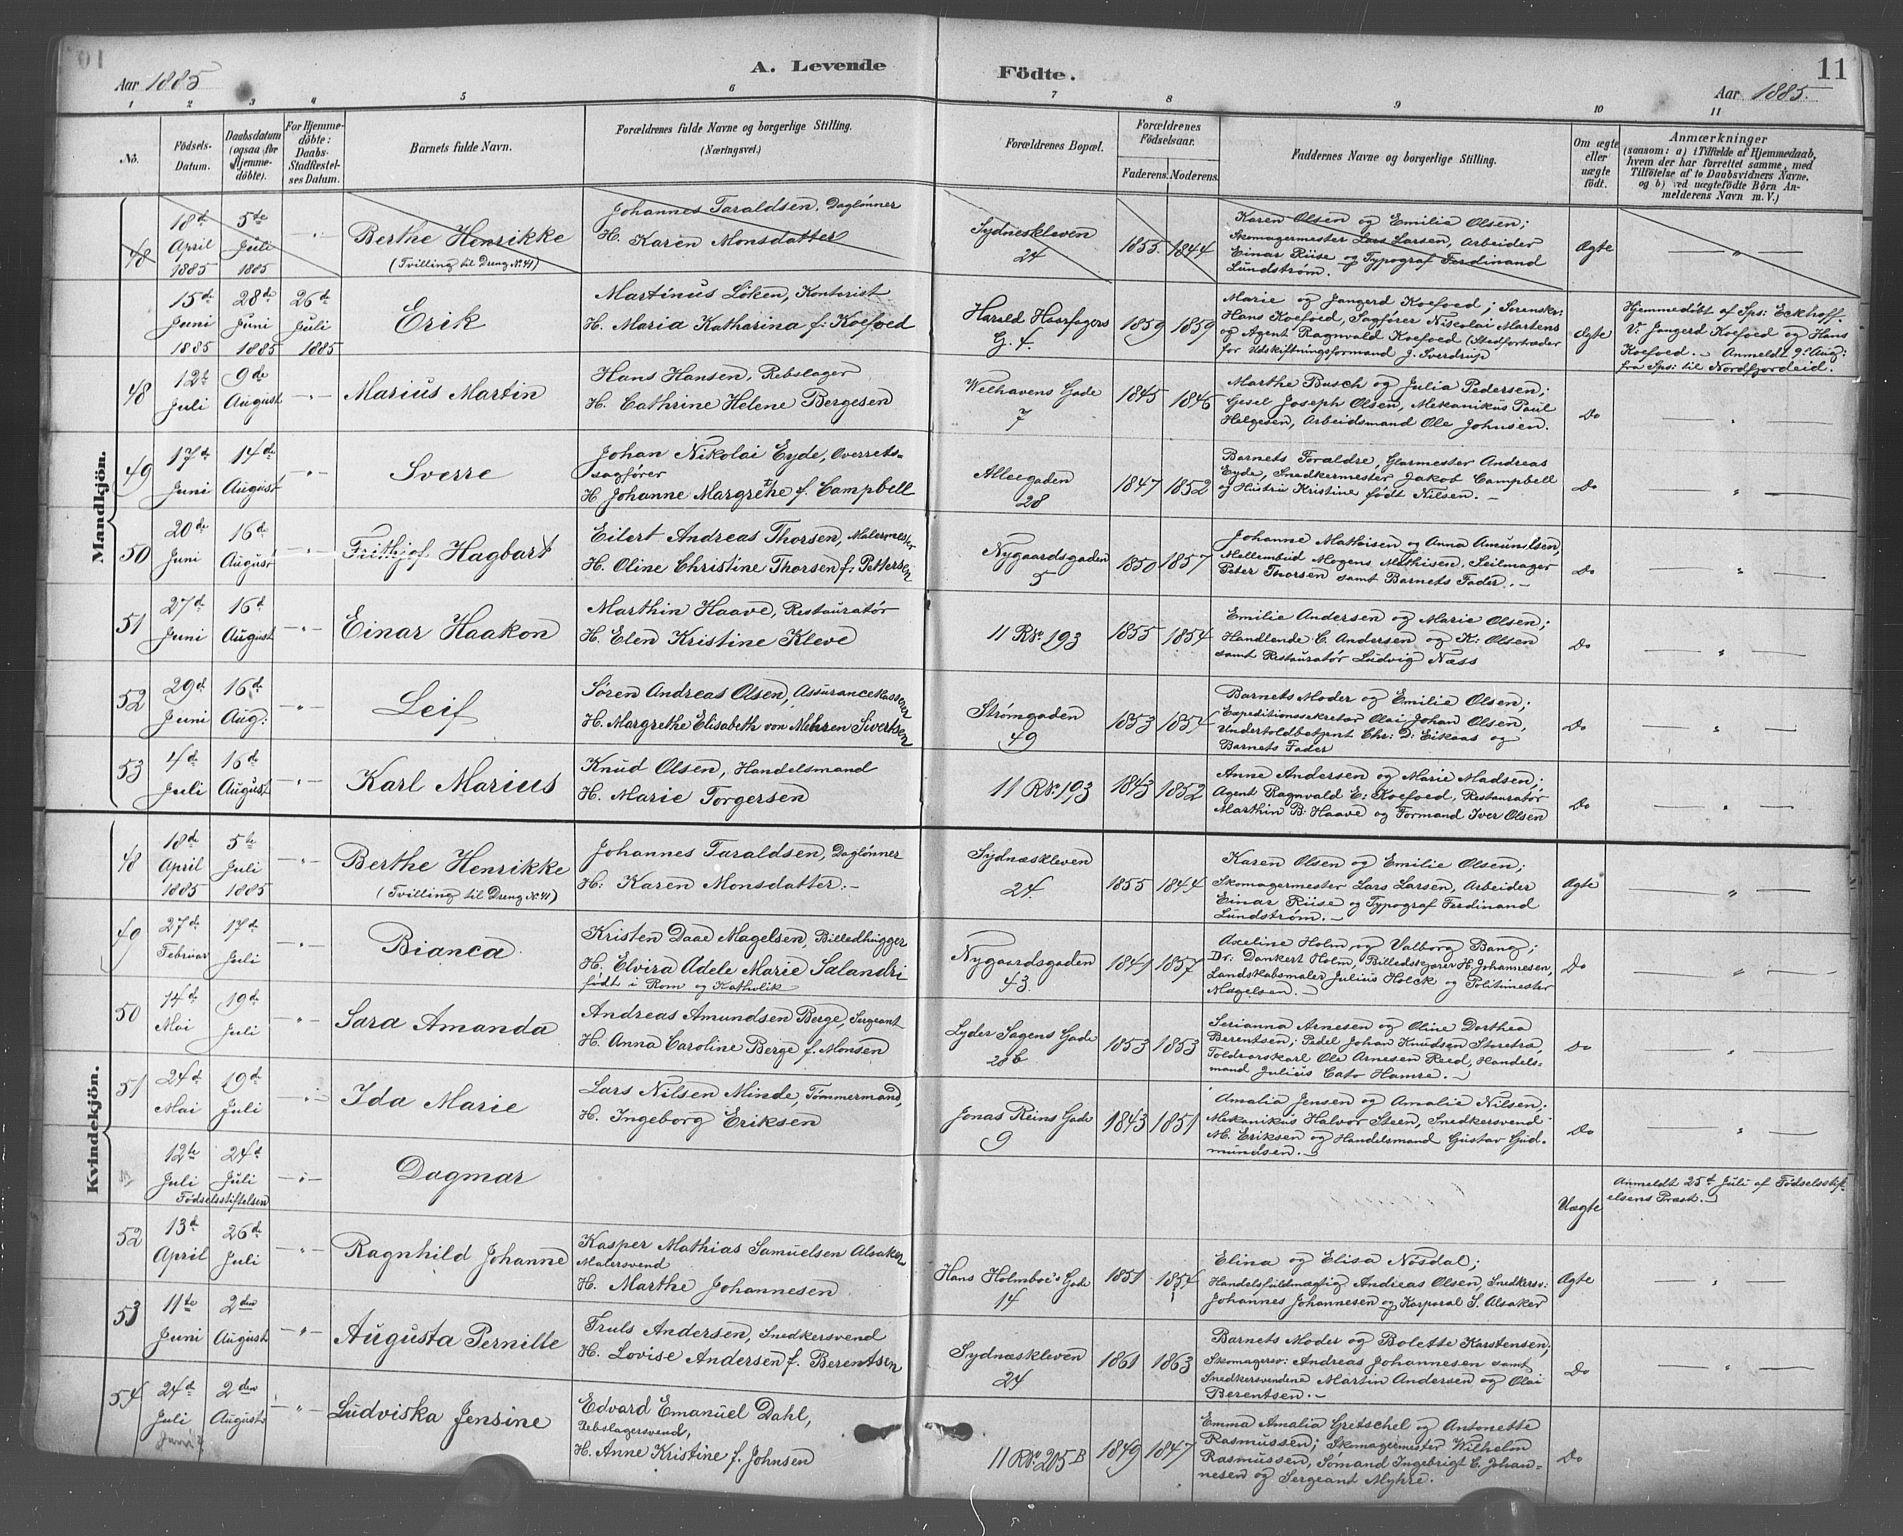 Aar 1885
A. Levende
Födte.
Aar 1885.
11
1 2 3 4 5 6 7 8 9 10 11
No.
Födsels-
Datum.
Daabsdatum
(ogsaa for
Hjemme-
döbte).
For Hjemme-
döbte:
Daabs-
Stadfæstel-
ses Datum.
Barnets fulde Navn.
Forældrenes fulde Navne og borgerlige Stilling.
(Næringsvei.)
Forældrenes Bopæl.
Forældrenes
Födselsaar.
Faderens. Moderens.
Faddernes Navne og borgerlige Stilling.
Om ægte
eller
uægte
födt.
Anmærkninger
(saasom: a) i Tilfælde af Hjemmedaab,
hvem der har forrettet samme, med
Tilföielse af to Daabsvidners Navne,
og b) ved uægtefödte Börn An-
melderens Navn m. V.)
Mandkjön.
48
18d April 1885
5te Juli 1885
Berthe Henrikke
(Tvilling til Dreng No. 41)
Johannes Taraldsen, Daglønner
H. Karen Monsdatter
Sydneskleven
24
1855. 1844
Karen Olsen og Emilie Olsen;
Skomagermester Lars Larsen, Arbeider
Einar Riise og Typograf Ferdinand
Lundstrøm.
Ægte
15de Juni 1885
28de Juni 1885
26de Juli 1885
Erik
Martinus Löken, Kontorist
H. Maria Katharina f: Koefoed
Harald Haarfagers
G. 4.
1859 1859
Marie og Jangerd Koefoed; Sorenskr:
Hans Koefoed, Sagfører Niscolai Martens
og Agent Ragnvald Koefoed (Stedfortræder
for Udskiftningsformand J. Sverdrup
Ægte
Hjemmedöbt af Sps: Eckhoff.
V: Jangerd Koefoed og Hans
Koefoed. – Anmeldt 9: Aug:
fra Sps: til Nordfjordeid.
48
12t Juli
9de August
Marius Martin
Hans Hansen, Rebslager
H. Cathrine Helene Bergesen
Welhavens Gade
7
1845 1846
Marthe Busch og Julia Pedersen;
Gesel Joseph Olsen, Mekanikus Paul
Helgesen, Arbeidsmand Ole Johnsen.
Do
49
17d Juni
14de August
Sverre
Johan Nikolai Eyde, Overrets-
sagfører
H. Johanne Margrethe f. Campbell
Alleegaden
28
1847 1852
Barnets Forældre, Glarmester Andreas
Eyde, Snedkermester Jakob Campbell
og Hustru Kristine født Nilsen. –
Do
50
20de Juni
16d August
Frithjof Hagbart
Eilert Andreas Thorsen, Malermester
H. Oline Christine Thorsen f: Pettersen
Nygaardsgaden
5
1850 1857
Johanne Mathisen og Anna Amundsen,
Mellembud Mogens Mathisen, Seilmager
Peter Thorsen samt Barnets Fader. –
Do
51
27d Juni
16d August
Einar Haakon
Marthin Haave, Restauratør
H. Elen Kristine Kleve
11 R No. 193
1855 1854
Emilie Andersen og Marie Olsen;
Handlende C. Andersen og K: Olsen
samt Restauratør Ludvig Næss
Do
52
29d Juni
16d Aug:
Leif
Søren Andreas Olsen, Assurancekasserer
H. Margrethe Elisabeth von Mehren Sivertsen
Strømgaden
49
1853 1854
Barnets Moder og Emilie Olsen;
Expeditionssekretær Olai Johan Olsen,
Undertoldbetjent Chr: D: Eikaas og
Barnets Fader
Do
53
4d Juli
16d August
Karl Marius
Knud Olsen, Handelsmand
H. Marie Torgersen
11 R No. 193
1843 1852
Anne Andersen og Marie Madsen;
Agent Ragnvald E: Koefoed, Restauratør
Marthin B: Haave og Formand Iver Olsen
Do
Kvindekjön.
48
18d April 1885
5te Juli 1885
Berthe Henrikke
(Tvilling til Dreng No. 41)
Johannes Taraldsen, Daglønner
H: Karen Monsdatter. –
Sydnæskleven
24.
1855 1844
Karen Olsen og Emilie Olsen;
Skomagermester Lars Larsen, Arbeider
Einar Riise og Typograf Ferdinand
Lundstrøm. –
Ægte
49
27de Februar
17d Juli
Bianca
Kristen Daae Magelsen, Billedhugger
H. Elvira Adele Marie Salandri
født i Rom og Katholik
Nygaardsgaden
43
1841 1857
Axeline Holm og Valborg Bang;
Dr: Dankert Holm, Billedskjærer H. Johannesen,
Landskabsmaler Julius Holck og Politimester
Magelsen. –
Do
50
14d Mai
19d Juli
Sara Amanda
Andreas Amundsen Berge, Sergeant
H. Anna Caroline Berge f. Monsen
Lyder Sagens Gade
28b
1853 1853
Serianna Arnesen og Oline Dorthea
Berentsen; Pedel Johan Knudsen Sturetra,
Toldrorskarl Ole Arnesen Reed, Handels-
mand Julius Cato Hamre. –
Do
51
24d Mai
19d Juli
Ida Marie
Lars Nilsen Minde, Tømmermand,
H. Ingeborg Eriksen
Jonas Reins Gade
9
1843 1851
Amalia Jensen og Amalie Nilsen;
Mekanikus Halvor Steen, Snedkersvend
M. Eriksen og Handelsmand Gustav Gud-
mundsen. –
Do
12te Juli
24d Juli
Födselsstiftelsen
Dagmar
Uægte
Anmeldt 25d Juli af Födselsstif-
elsens Præst. –
52
13d April
26d Juli
Ragnhild Johanne
Kasper Mathias Samuelsen Alsaker
Malersvend
H. Marthe Johannesen
Hans Holmboe's Gade
14
1851 1854
Elina og Elisa Nøsdal;
Handelsfuldmægtig Andreas Olsen, Snedkersv:
Johannes Johannesen og Korporal S. Alsaker
Ægte
53
11te Juni
2den August
Augusta Pernille
Truls Andersen, Snedkersvend
H. Lovise Andersen f. Berentsen
Sydnæskleven
24
1861 1863
Barnets Moder og Bolette Karstensen;
Skomagersv: Andreas Johannesen samt
Snedkersvendene Martin Andersen og Olai
Berentsen. –
Do
54
24d Juli
Juni ?
2den August
Ludviska Jensine
Edvard Emanuel Dahl,
Rebslagersvend,
H. Anne Kristine f. Johnsen
11 R No. 205 B
1849 1847
Emma Amalia Gretschel og Antonette
Rasmussen; Skomagermester Wilhelm
Rasmussen, Sømand Ingebrigt C. Johan-
nesen og Sergeant Myhre.
Do